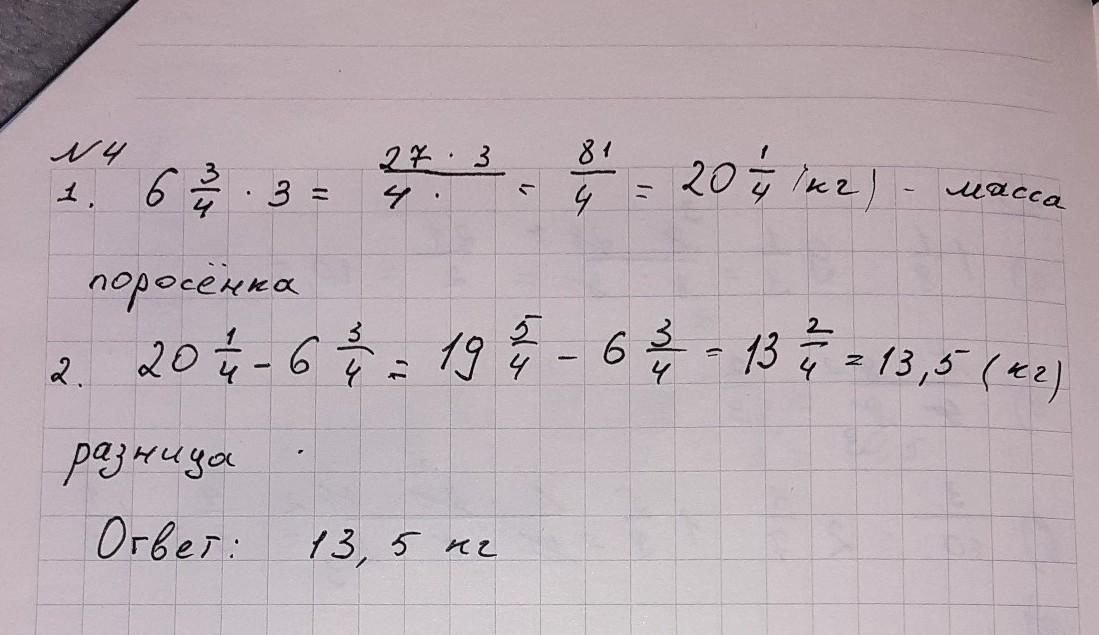 №4
1. 6 3/4 · 3 = 27 · 3/4 · = 81/4 = 20 1/4 (кг) - масса
поросёнка
2. 20 1/4 - 6 3/4 = 19 5/4 - 6 3/4 = 13 2/4 = 13,5 (кг)
разница
Ответ: 13,5 кг